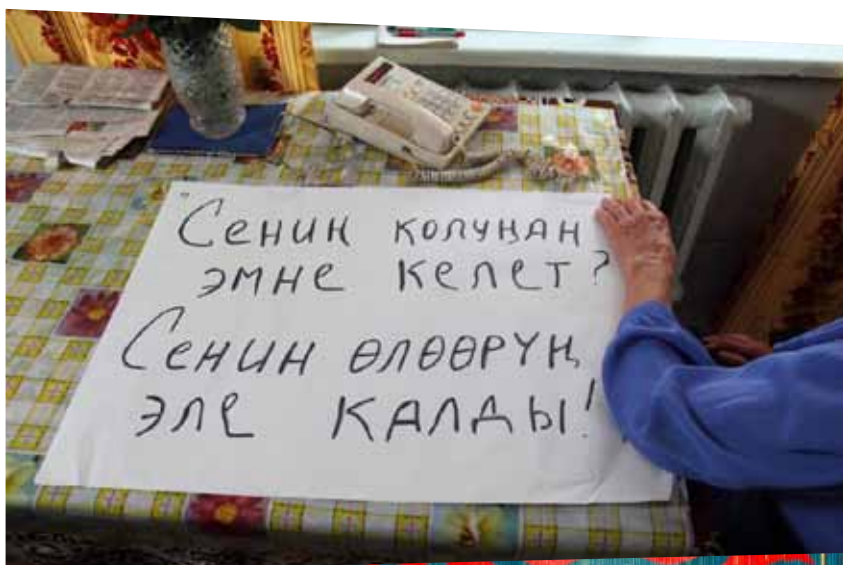 "Сениң колуңан
эмне келет?
Сенин өлөөрүң
эле калды!